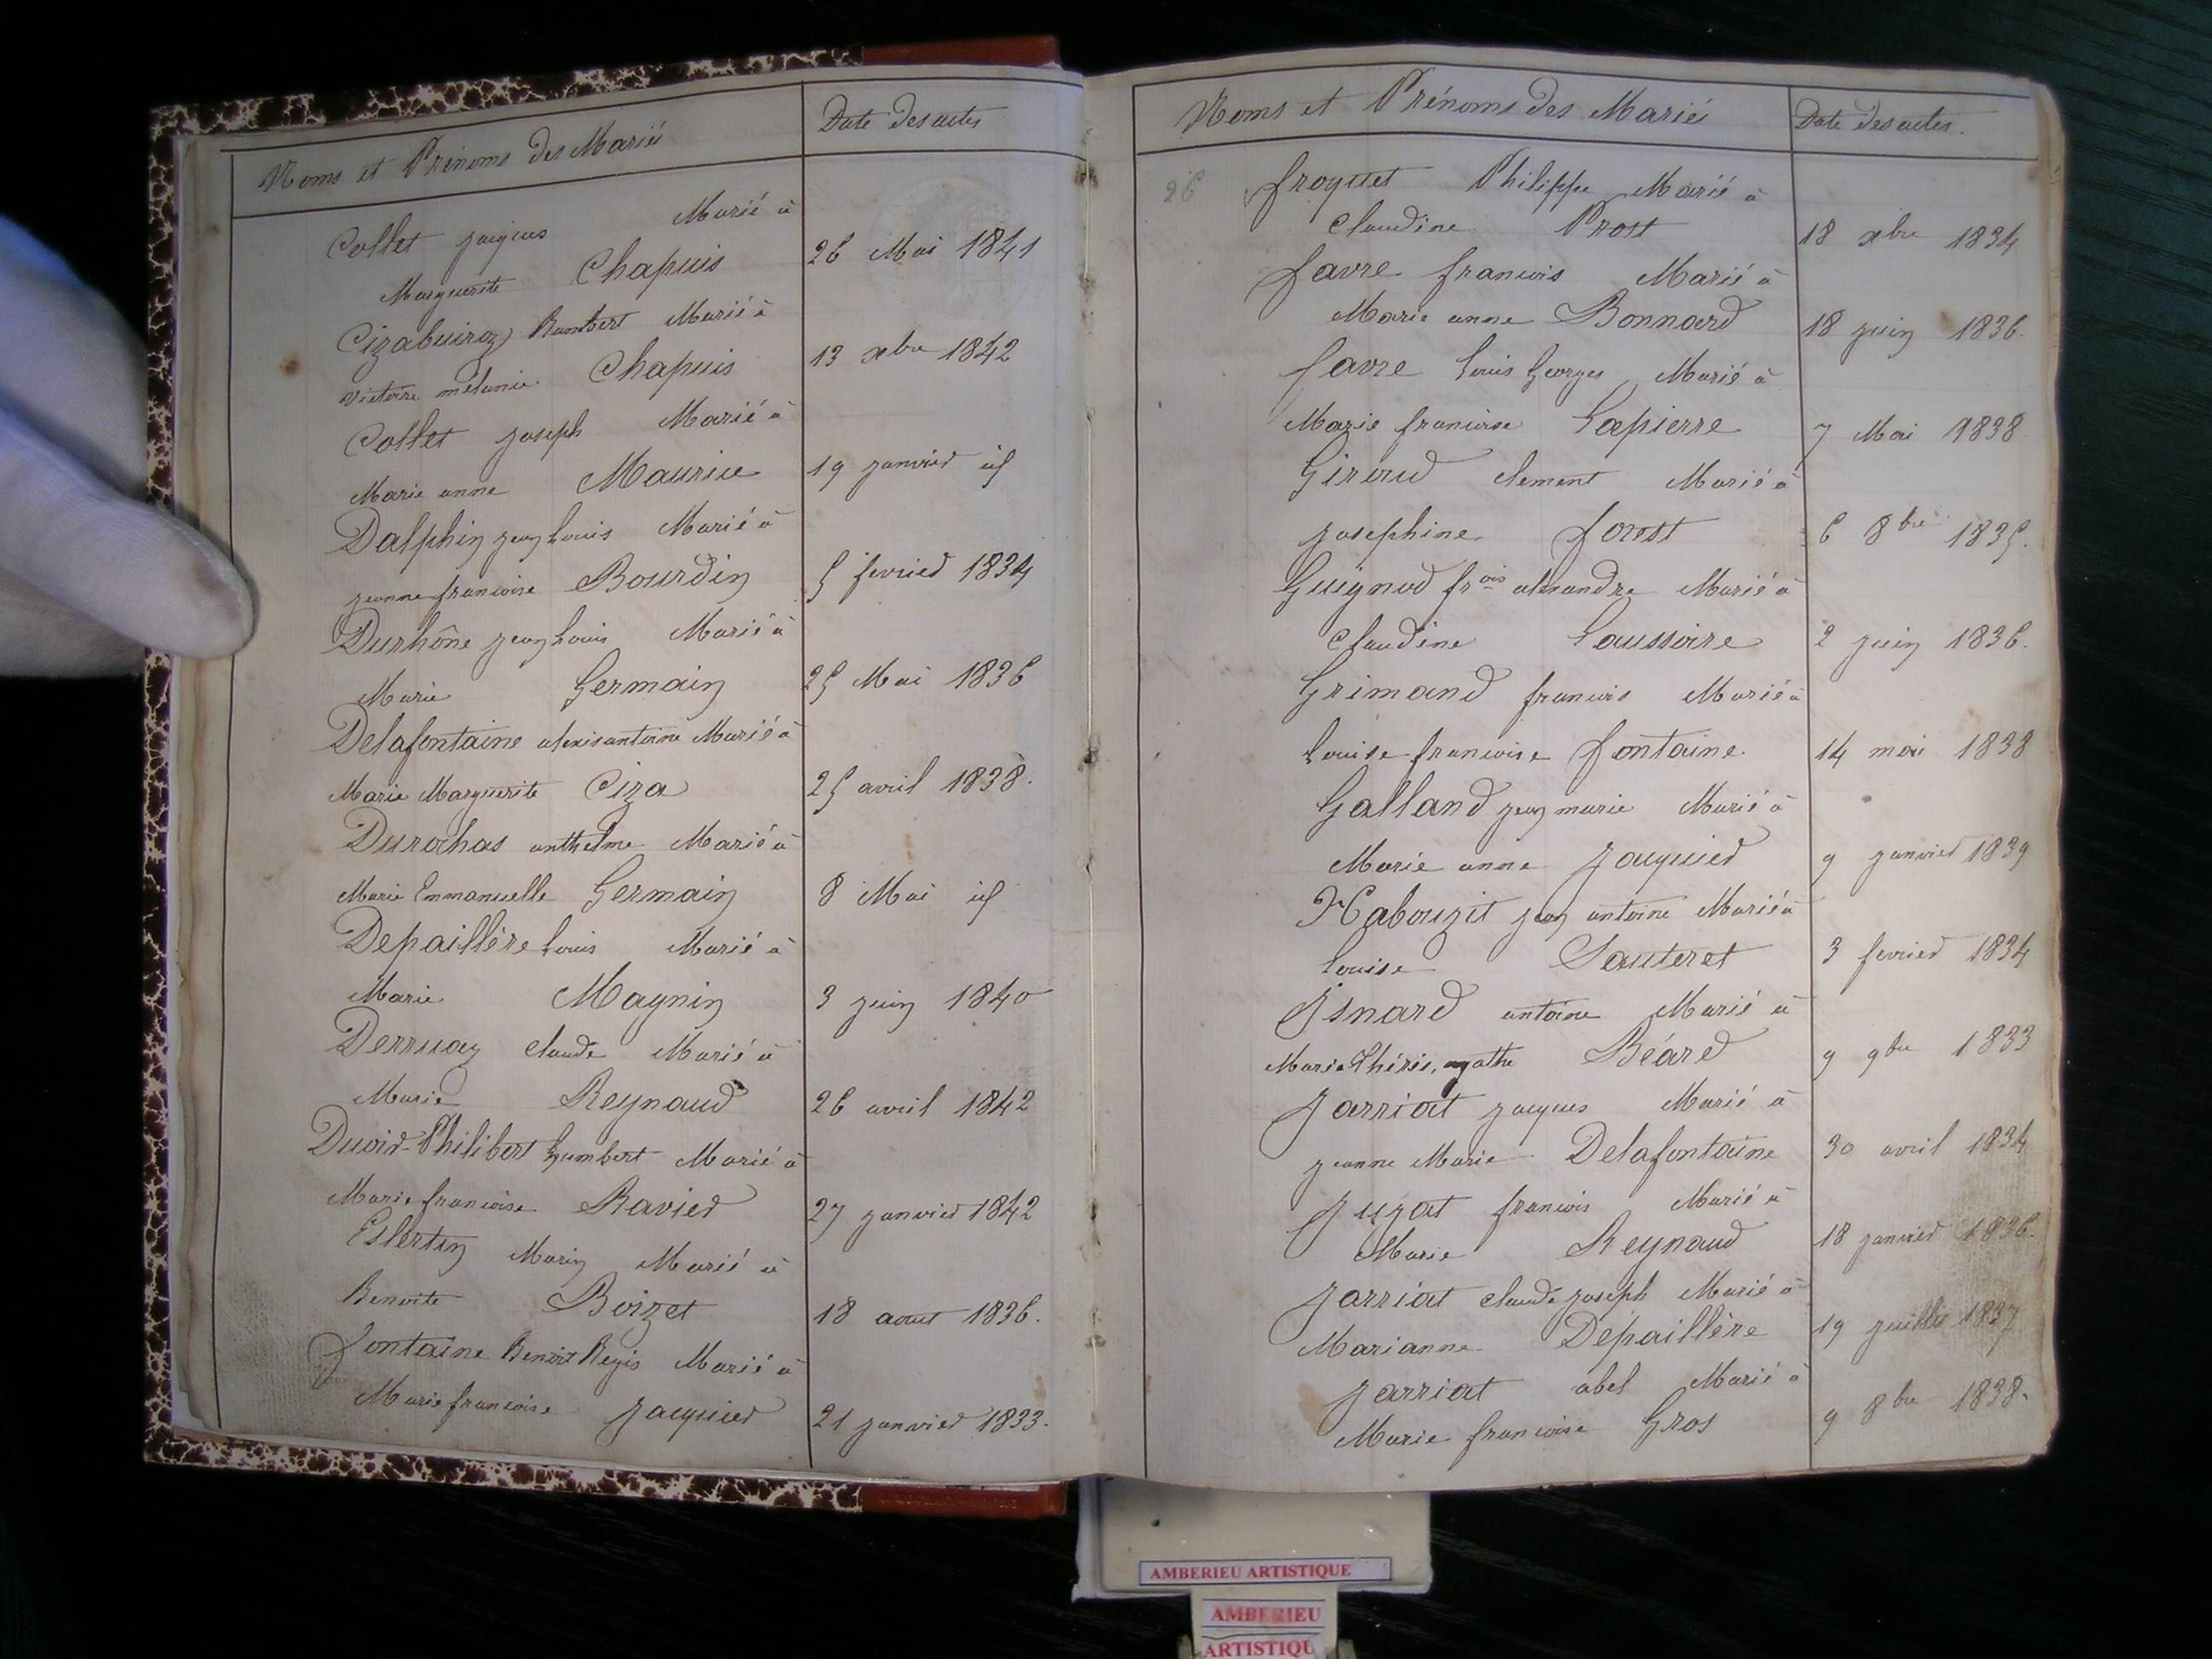 Noms et Prénoms des Mariés Date des actes
Collet jacques Marié à
Marguerite Chapuis 26 Mai 1841
Cizabuiroz Rambert Marié à
victoire mélanie Chapuis 13 xbre 1842
Collet joseph Marié à
Marie anne Maurice 19 janvier id
Dalphin jean Louis Marié à
jeanne francoise Bourdin 5 fevrier 1834
Durhône jean Louis Marié à
Marie Germain 25 Mai 1836
Delafontaine alexis antoine Marié à
Marie Marguerite Ciza 25 avril 1838.
Durochas anthelme Marié à
Marie Emmanuelle Germain 8 Mai id
Depaillère Louis Marié à
Marie Magnin 3 juin 1840
Derruaz claude Marié à
Marie Reynaud 26 avril 1842
Philibert humbert Marié à
Marie francoise Ravier 27 janvier 1842
Eslertin Marin Marié à
Benoite Boizet 18 aout 1836.
fontaine Benoit Regis Marié à
Marie francoise jacquier 21 janvier 1833.
Noms et Prénoms des Mariés Date des actes.
26 froquet Philippe Marié à
Claudine Prost 18 xbre 1834
favre francois Marié à
Marie anne Bonnard 18 juin 1836.
favre Louis Georges Marié à
Marie francoise Lapierre 7 Mai 1838
Giroud clement Marié à
josephine forest 6 8bre 1835.
Guignod frois alexandre Marié à
Claudine Laussoire 2 juin 1836.
Grimand francois Marié à
Louise francoise fontaine. 14 mai 1838
Galland jean marie Marié à
Marie anne jacquier 9 janvier 1839
Habouzit jean antoine Marié à
Louise Sauteret 3 fevrier 1834
Isnard antoine Marié à
Marie Thérèse agathe Béard 9 9bre 1833
Jarriat jacques Marié à
jeanne Marie Delafontaine 30 avril 1834
Jujat francois Marié à
Marie Reynaud 18 janvier 1836.
Jarriat claude joseph Marié à
Marianne Depaillère 19 juillet 1837
Jarriat abel Marié à
Marie francoise Gros 9 8bre 1838.
AMBERIEU ARTISTIQUE
AMBERIEU
ARTISTIQU